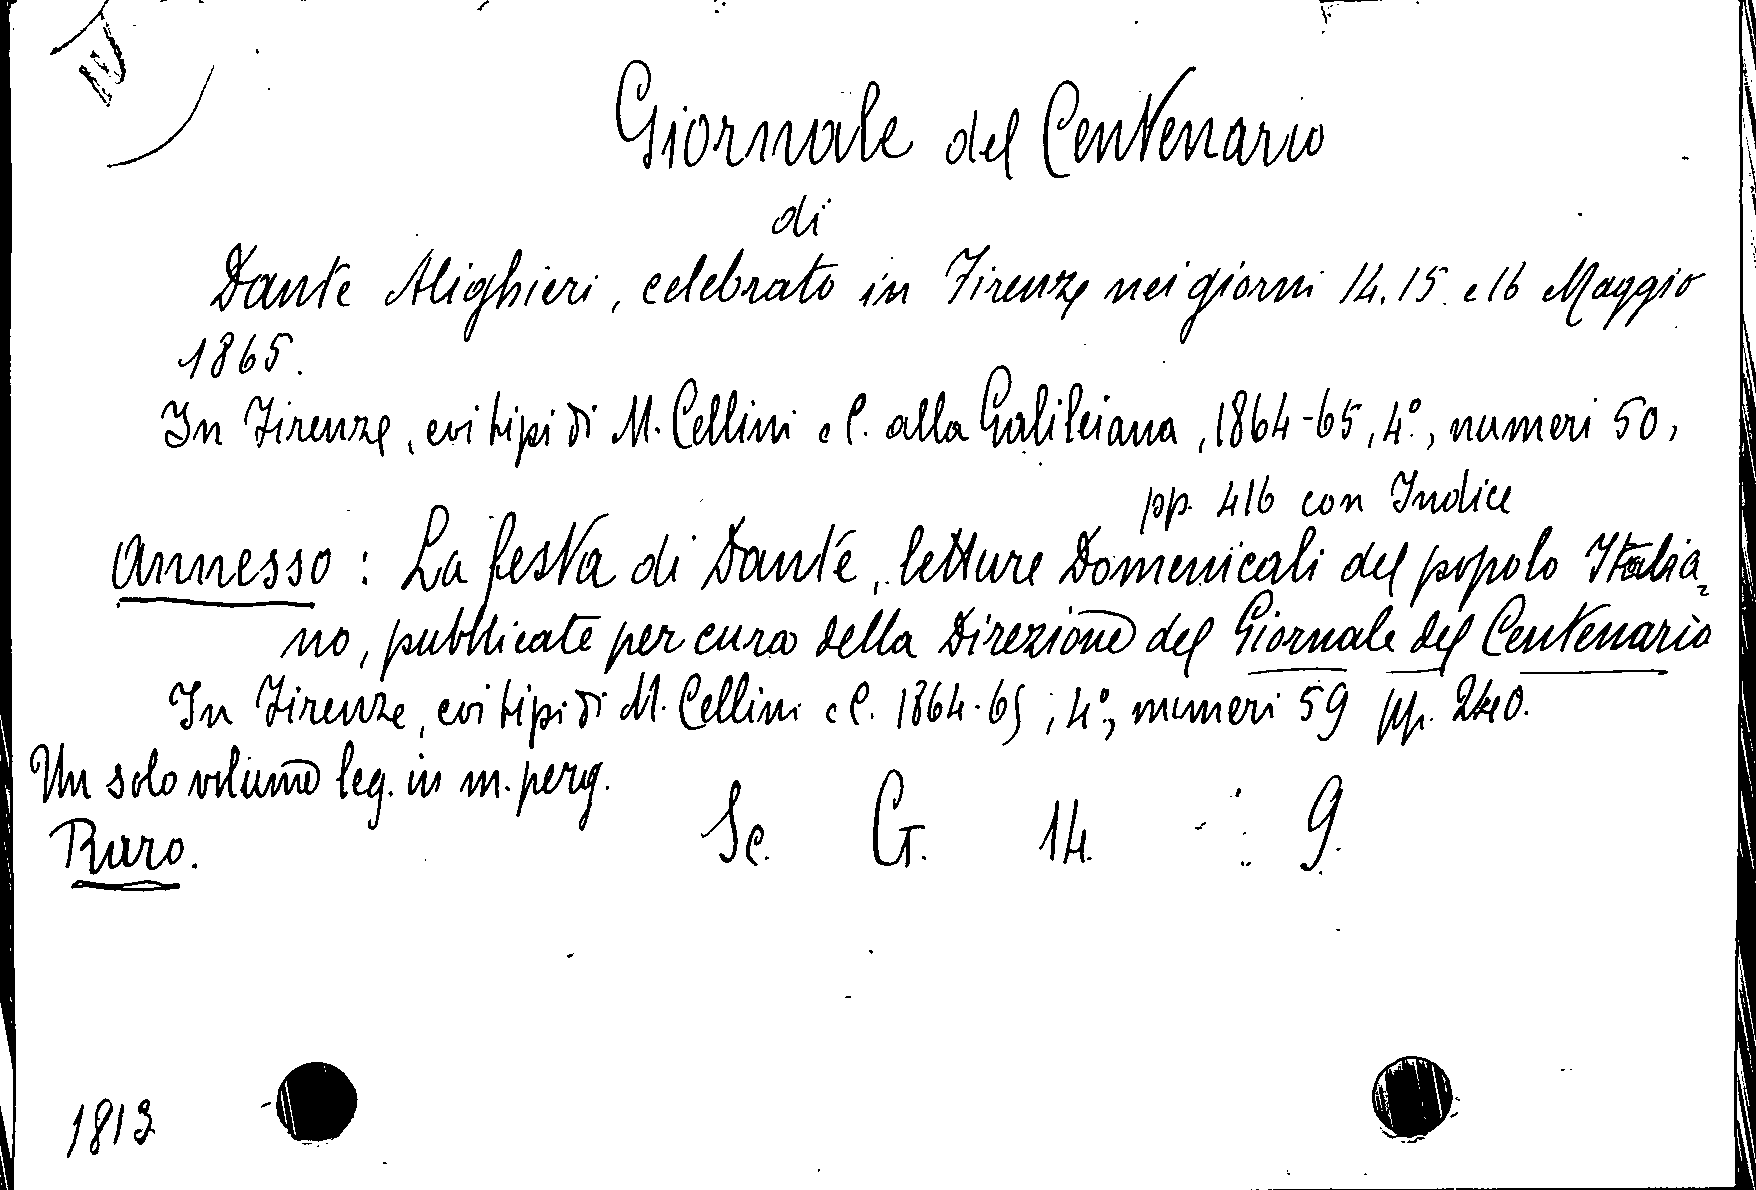 IV
Giornale del Centenario
di
Dante Alighieri, celebrato in Firenze nei giorni 14. 15. e 16 Maggio
1865.
In Firenze, coi tipi di M. Cellini e C. alla Galileiana, 1864-65, 4°., numeri 50,
pp. 416 con Indice
Annesso: La festa di Dante, letture Domenicali del popolo Italia=
no, pubblicate per cura della Direzione del Giornale del Centenario
In Firenze, coi tipi di M. Cellini e C. 1864-65, 4°, numeri 59 pp. 240.
Un solo volume leg. in m. perg.
Raro. Sc. G. 14. 9.
1813